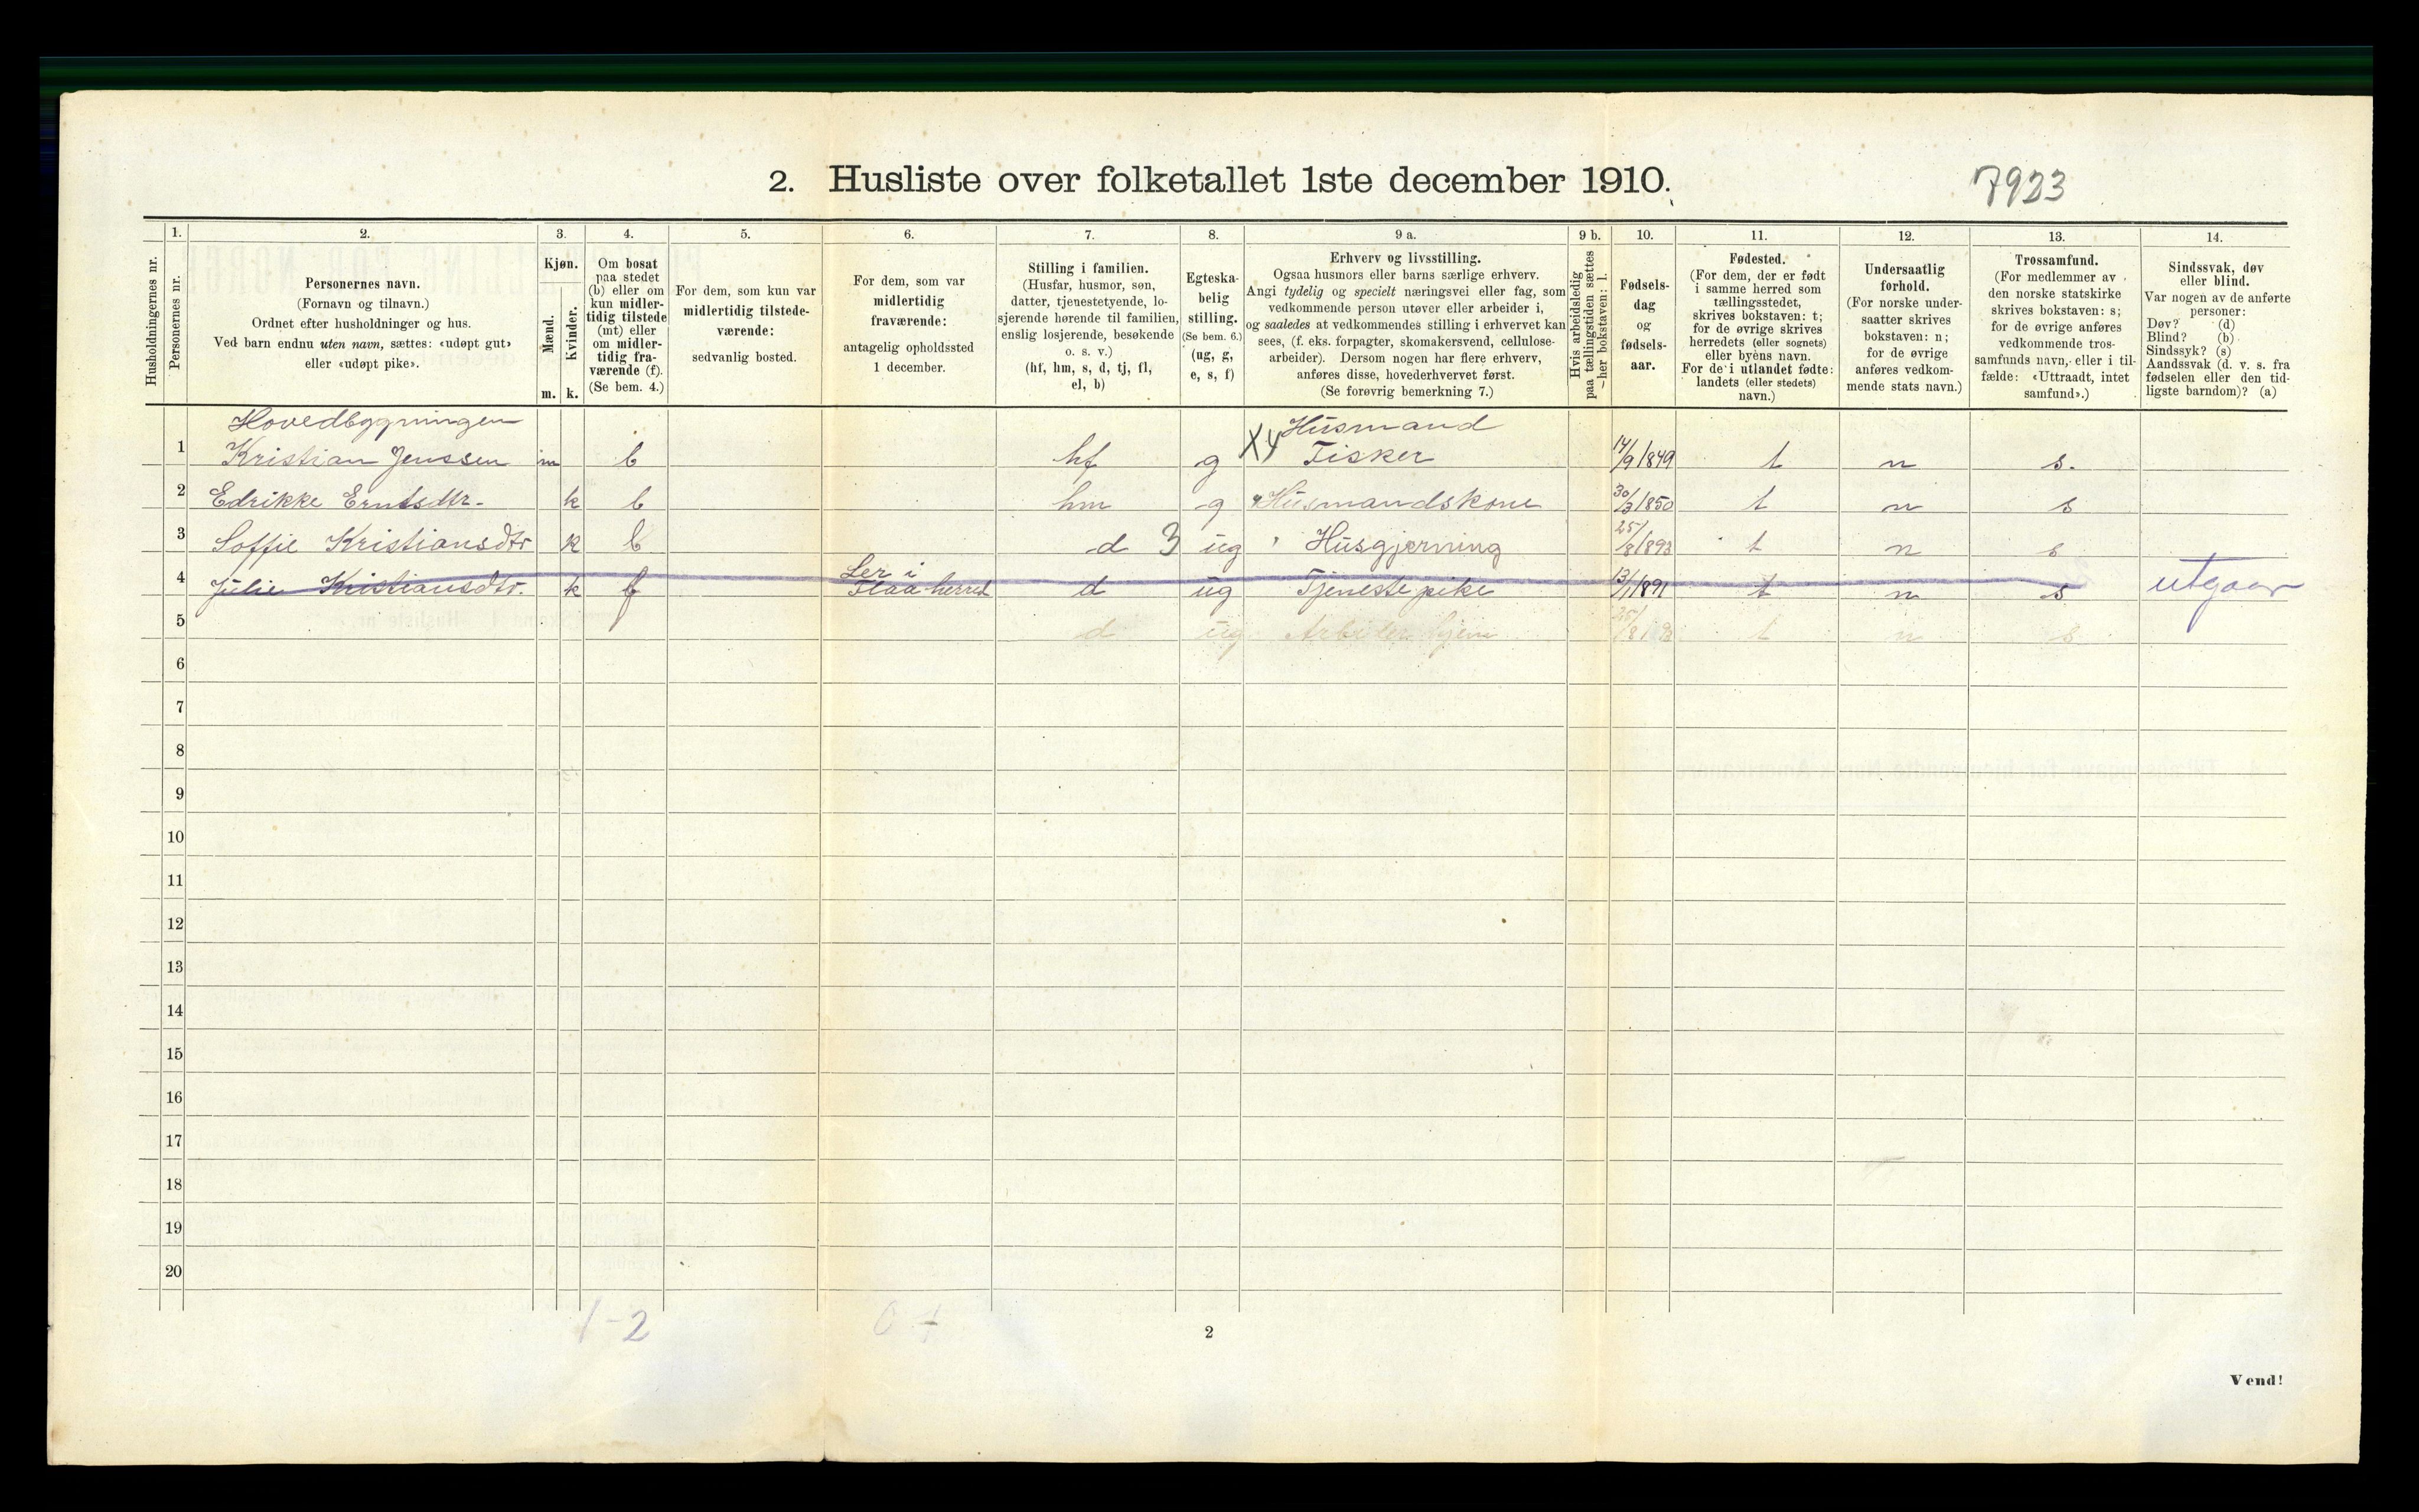 2. Husliste over folketallet 1ste december 1910.
7923
1. 2. 3. 4. 5. 6. 7. 8. 9 a. 9 b. 10. 11. 12. 13. 14.
Husholdningernes nr.
Personernes nr.
Personernes navn.
(Fornavn og tilnavn.)
Ordnet efter husholdninger og hus.
Ved barn endnu uten navn, sættes: «udøpt gut»
eller «udøpt pike».
Kjøn.
Mænd.
Kvinder.
m. k.
Om bosat
paa stedet
(b) eller om
kun midler-
tidig tilstede
(mt) eller
om midler-
tidig fra-
værende (f).
(Se bem. 4.)
For dem, som kun var
midlertidig tilstede-
værende:
sedvanlig bosted.
For dem, som var
midlertidig
fraværende:
antagelig opholdssted
1 december.
Stilling i familien.
(Husfar, husmor, søn,
datter, tjenestetyende, lo-
sjerende hørende til familien,
enslig losjerende, besøkende
o. s. v.)
(hf, hm, s, d, tj, fl,
el, b)
Egteska-
belig
stilling.
(Se bem. 6.)
(ug, g,
e, s, f)
Erhverv og livsstilling.
Ogsaa husmors eller barns særlige erhverv.
Angi tydelig og specielt næringsvei eller fag, som
vedkommende person utøver eller arbeider i,
og saaledes at vedkommendes stilling i erhvervet kan
sees, (f. eks. forpagter, skomakersvend, cellulose-
arbeider). Dersom nogen har flere erhverv,
anføres disse, hovederhvervet først.
(Se forøvrig bemerkning 7.)
Hvis arbeidsledig
paa tællingstiden sættes
her bokstaven: l.
Fødsels-
dag
og
fødsels-
aar.
Fødested.
(For dem, der er født
i samme herred som
tællingsstedet,
skrives bokstaven: t;
for de øvrige skrives
herredets (eller sognets)
eller byens navn.
For de i utlandet fødte:
landets (eller stedets)
navn.)
Undersaatlig
forhold.
(For norske under-
saatter skrives
bokstaven: n;
for de øvrige
anføres vedkom-
mende stats navn.)
Trossamfund.
(For medlemmer av
den norske statskirke
skrives bokstaven: s;
for de øvrige anføres
vedkommende tros-
samfunds navn, eller i til-
fælde: «Uttraadt, intet
samfund».)
Sindssvak, døv
eller blind.
Var nogen av de anførte
personer:
Døv? (d)
Blind? (b)
Sindssyk? (s)
Aandssvak (d. v. s. fra
fødselen eller den tid-
ligste barndom)? (a)
Hovedbygningen Husmand
1 Kristian Jenssen m b hf g X4 Fisker 14/9 1849 t n s.
2 Edrikke Erntsdtr. k b hm g Husmandskone 30/3 1850 t n s
3 Soffie Kristiansdtr k b d 3 ug Husgjerning 25/8 1893 t n s
Ler i
4 Julie Kristiansdtr. k f Flaa herred d ug Tjenestepike 13/1 1891 t n s utgaar
5 d ug t n s
6
7
8
9
10
11
12
13
14
15
16
17
18
19
20
1-2
2
Vend!